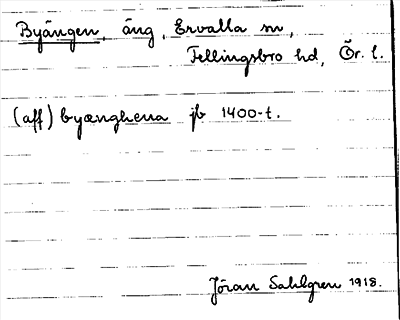 Byängen, äng, Ervalla sn,
Fellingsbro hd, Ör. l.
(aff) byænghena jb 1400-t.
Jöran Sahlgren 1918.